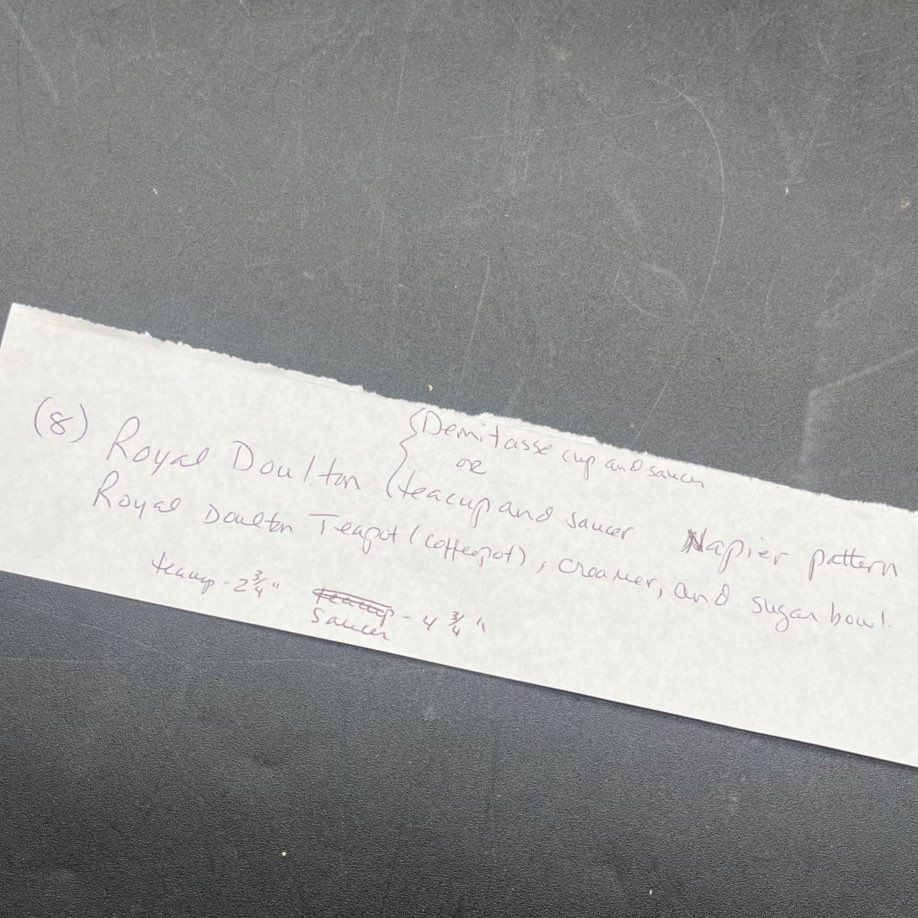 (8) Royal Doulton { Demitasse cup and saucer
or
teacup and saucer Napier pattern
Royal Doulton Teapot (coffeepot), creamer, and sugar bowl.
teacup - 2 3/4" teacup - 4 3/4"
Saucer